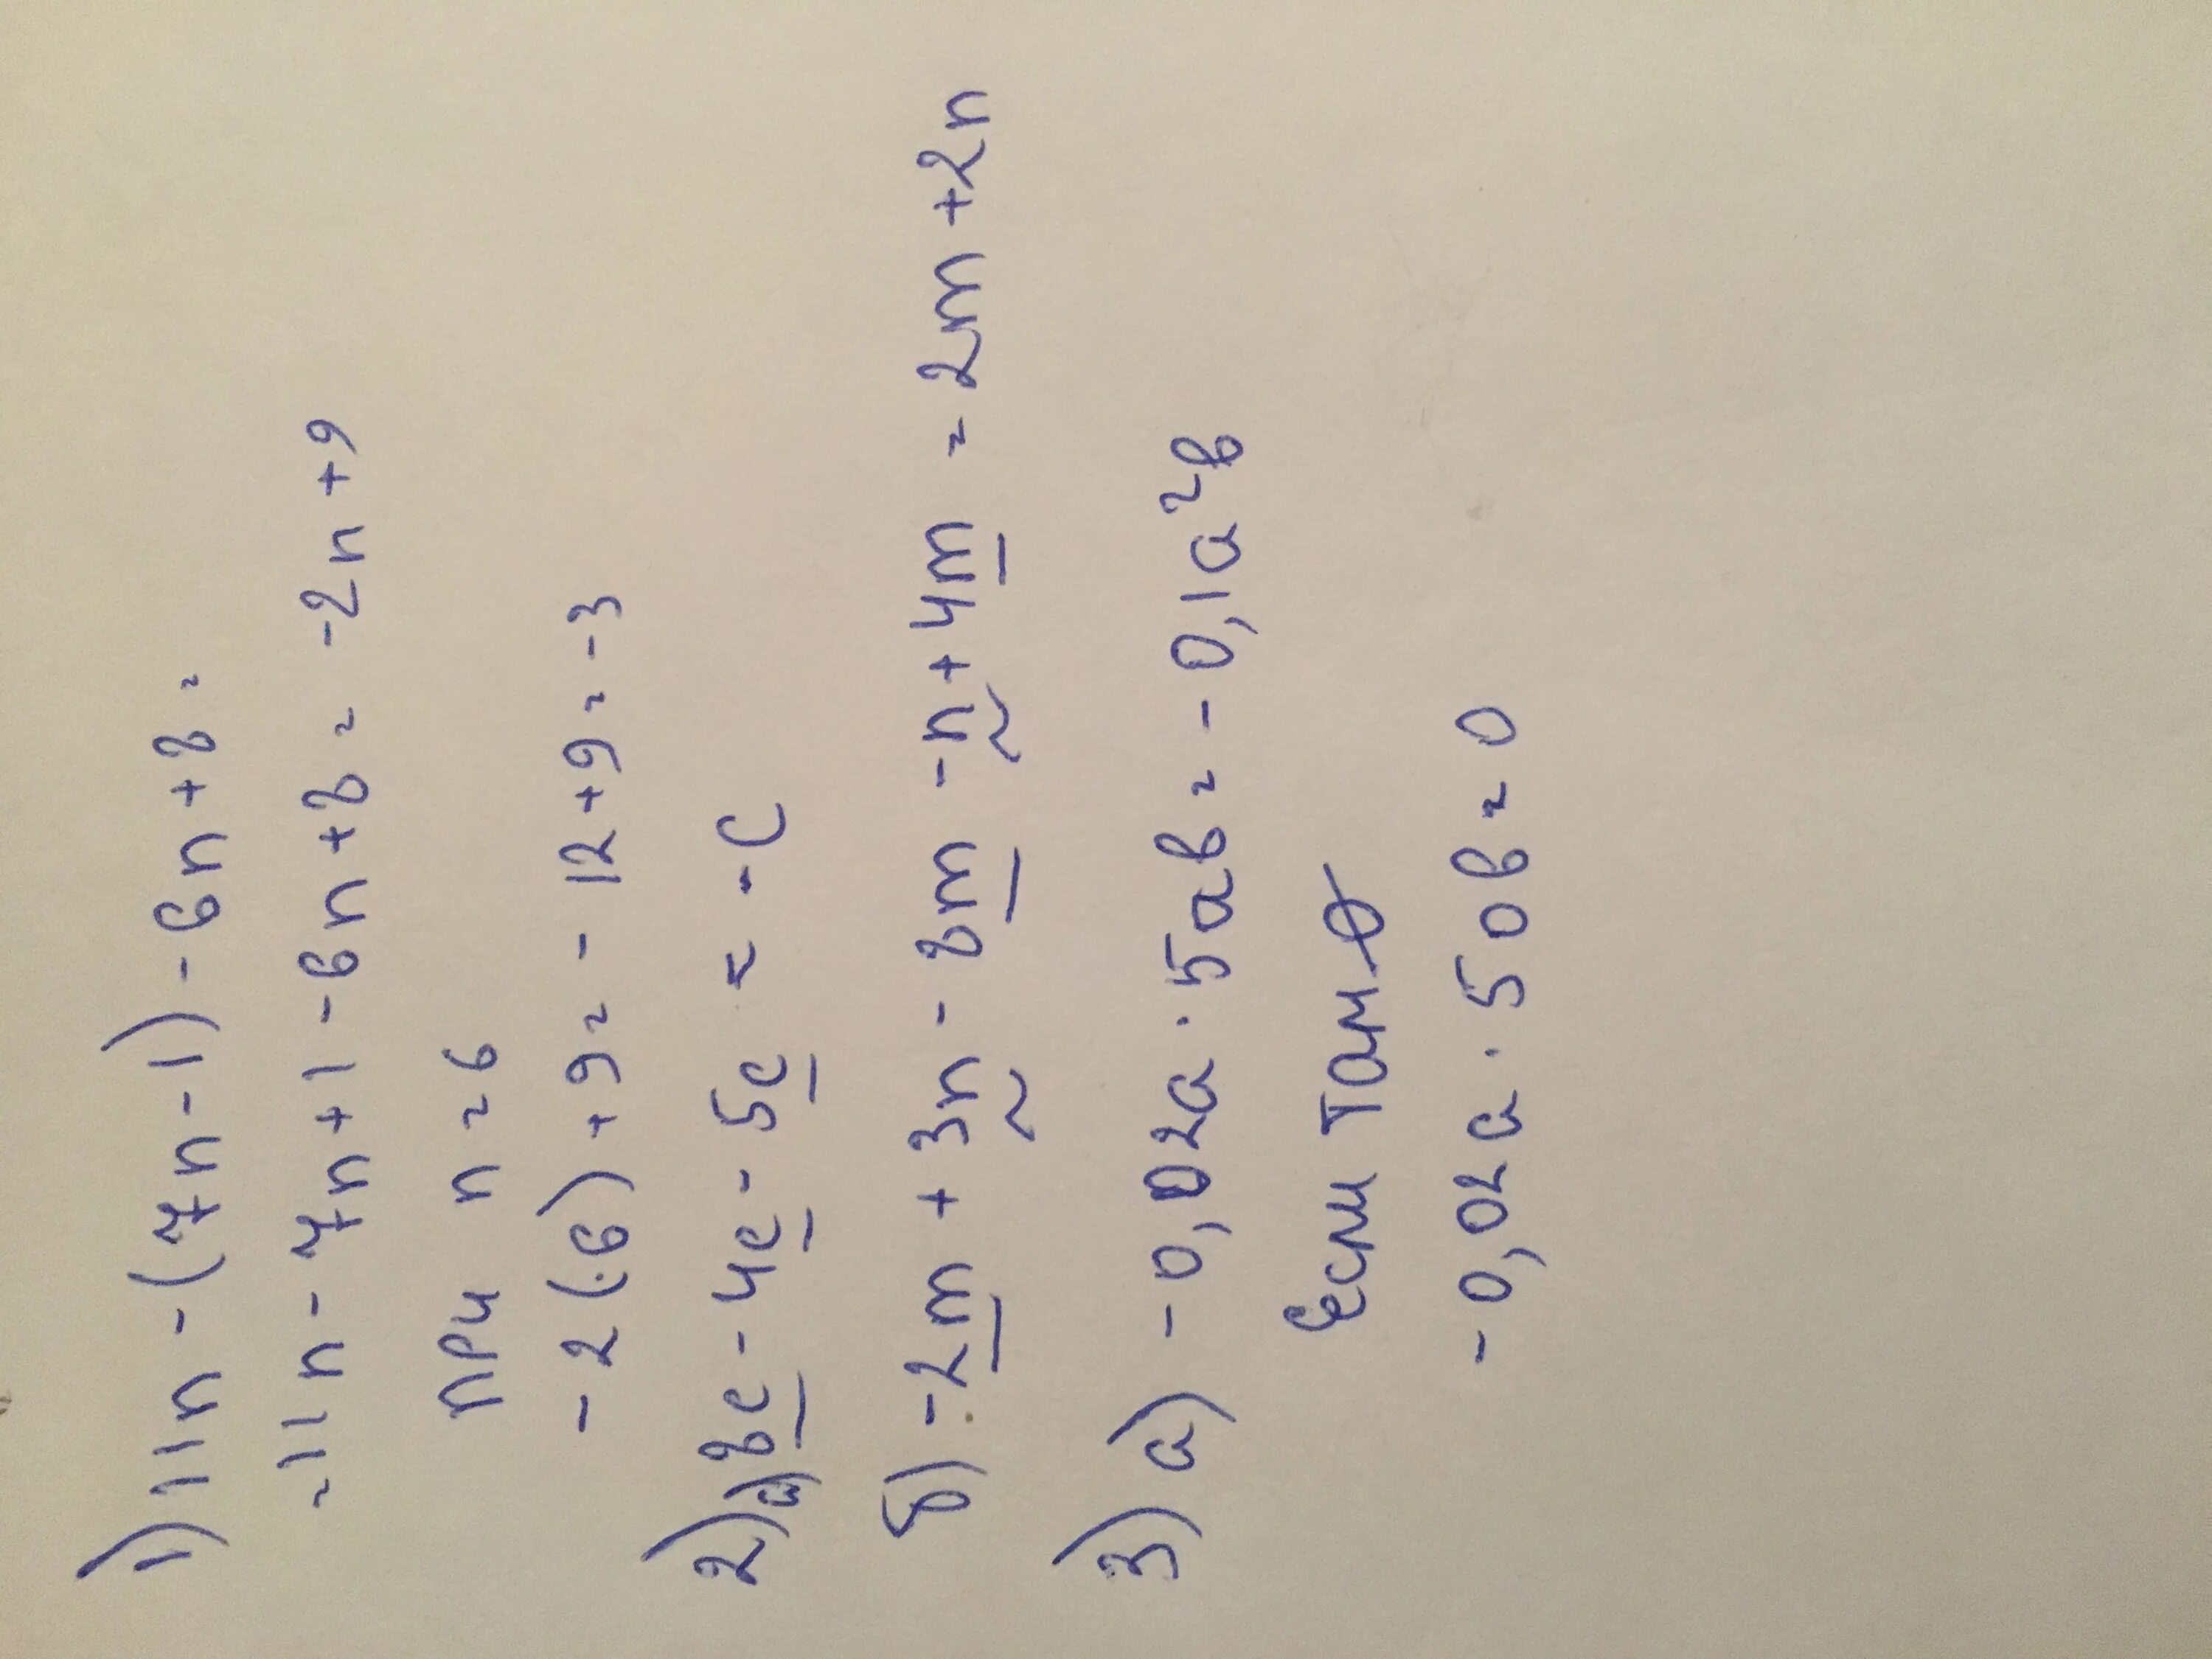 1) 11n - (7n - 1) - 6n + 8 =
= 11n - 7n + 1 - 6n + 8 = -2n + 9
при n = 6
-2(·6) + 9 = -12 + 9 = -3
2) а) 8c - 4c - 5c = -c
б) -2m + 3n - 8m - n + 4m = 2m + 2n
3) а) -0,02а · 5ав = -0,1а²в
Если там 0
-0,02а · 50в = 0